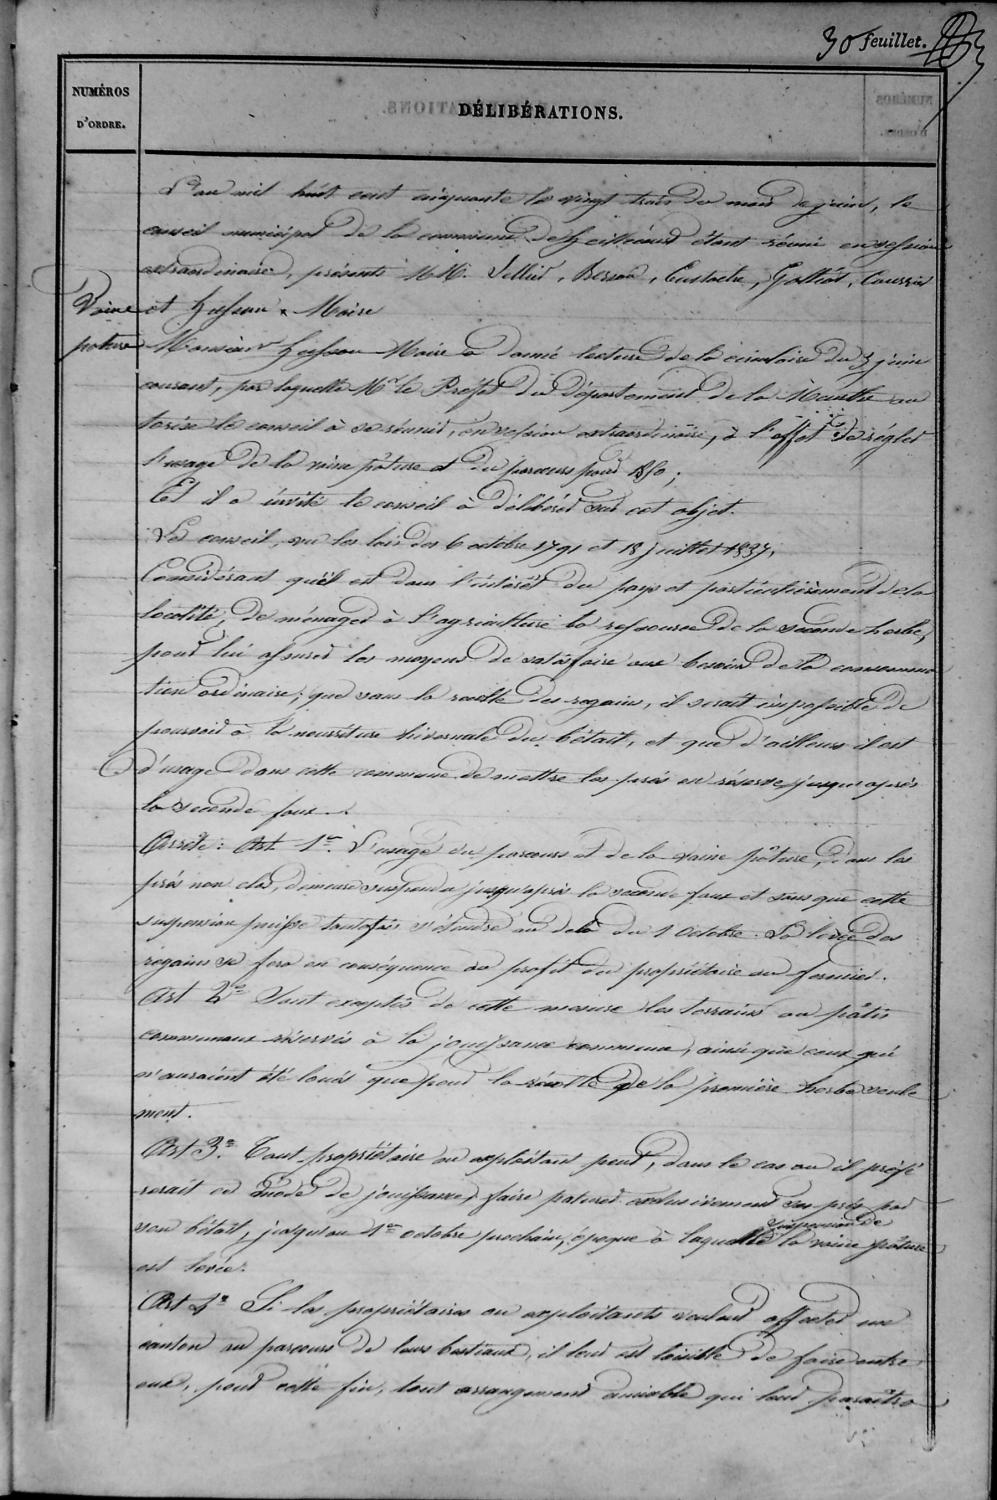 30 feuillet.
NUMÉROS
D'ORDRE.
DÉLIBÉRATIONS.
L'an mil huit cent cinquante le vingt trois du mois de juin, le
conseil municipal de la commune de étant réuni en session
extraordinaire, présents M.M. Sellier, Besson, Eustache, Galliot, Coursin
et Husson Maire
Vaine
pâture
Monsieur Husson Maire a donné lecture de la circulaire du 3 juin
courant, par laquelle Mr le Préfet du Département de la Meurthe au
torise le conseil à se réunir, en session extraordinaire, à l'effet de régler
l'usage de la vaine pâture et du parcours pour 1850;
Et il a invité le conseil à délibérer sur cet objet.
Le conseil, vu les lois des 6 octobre 1791 et 18 juillet 1837,
Considérant qu'il est dans l'intérêt du pays et particulièrement de la
localité, de ménager à l'agriculture la ressource de la seconde herbe,
pour lui assurer les moyens de satisfaire aux besoins de la consomma
tion ordinaire; que sans la recolte des regains, il serait impossible de
pourvoir à la nourriture hivernale du bétail, et que d'ailleurs il est
d'usage dans cette commune de mettre les prés en réserve jusqu'après
la seconde faux.
Arrête: Art. 1er. L'usage du parcours et de la vaine pâture, dans les
prés non clos, demeure suspendu jusqu'après la seconde faux et sans que cette
suspension puisse toutefois s'étendre au delà du 1 octobre. La levée des
regains se fera en conséquence au profit du propriétaire ou fermier.
Art 2e Sont exceptés de cette mesure les terrains ou pâtis
communaux réservés à la jouissance commune, ainsi que ceux qui
n'auraient été loués que pour la récolte de la première herbe seule
ment.
Art 3e. Tout propriétaire ou exploitant peut, dans le cas où il préfé
rerait ce mode de jouissance, faire paturer exclusivement ses prés par
son bétail, jusqu'au 1er octobre prochain, époque à laquelle la suspension de la vaine pâture
est levée.
Art 4e Si les propriétaires ou exploitants veulent affecter un
canton au parcours de leurs bestiaux, il leur est loisible de faire entre
eux, pour cette fin, tout arrangement amiable qui leur paraîtra